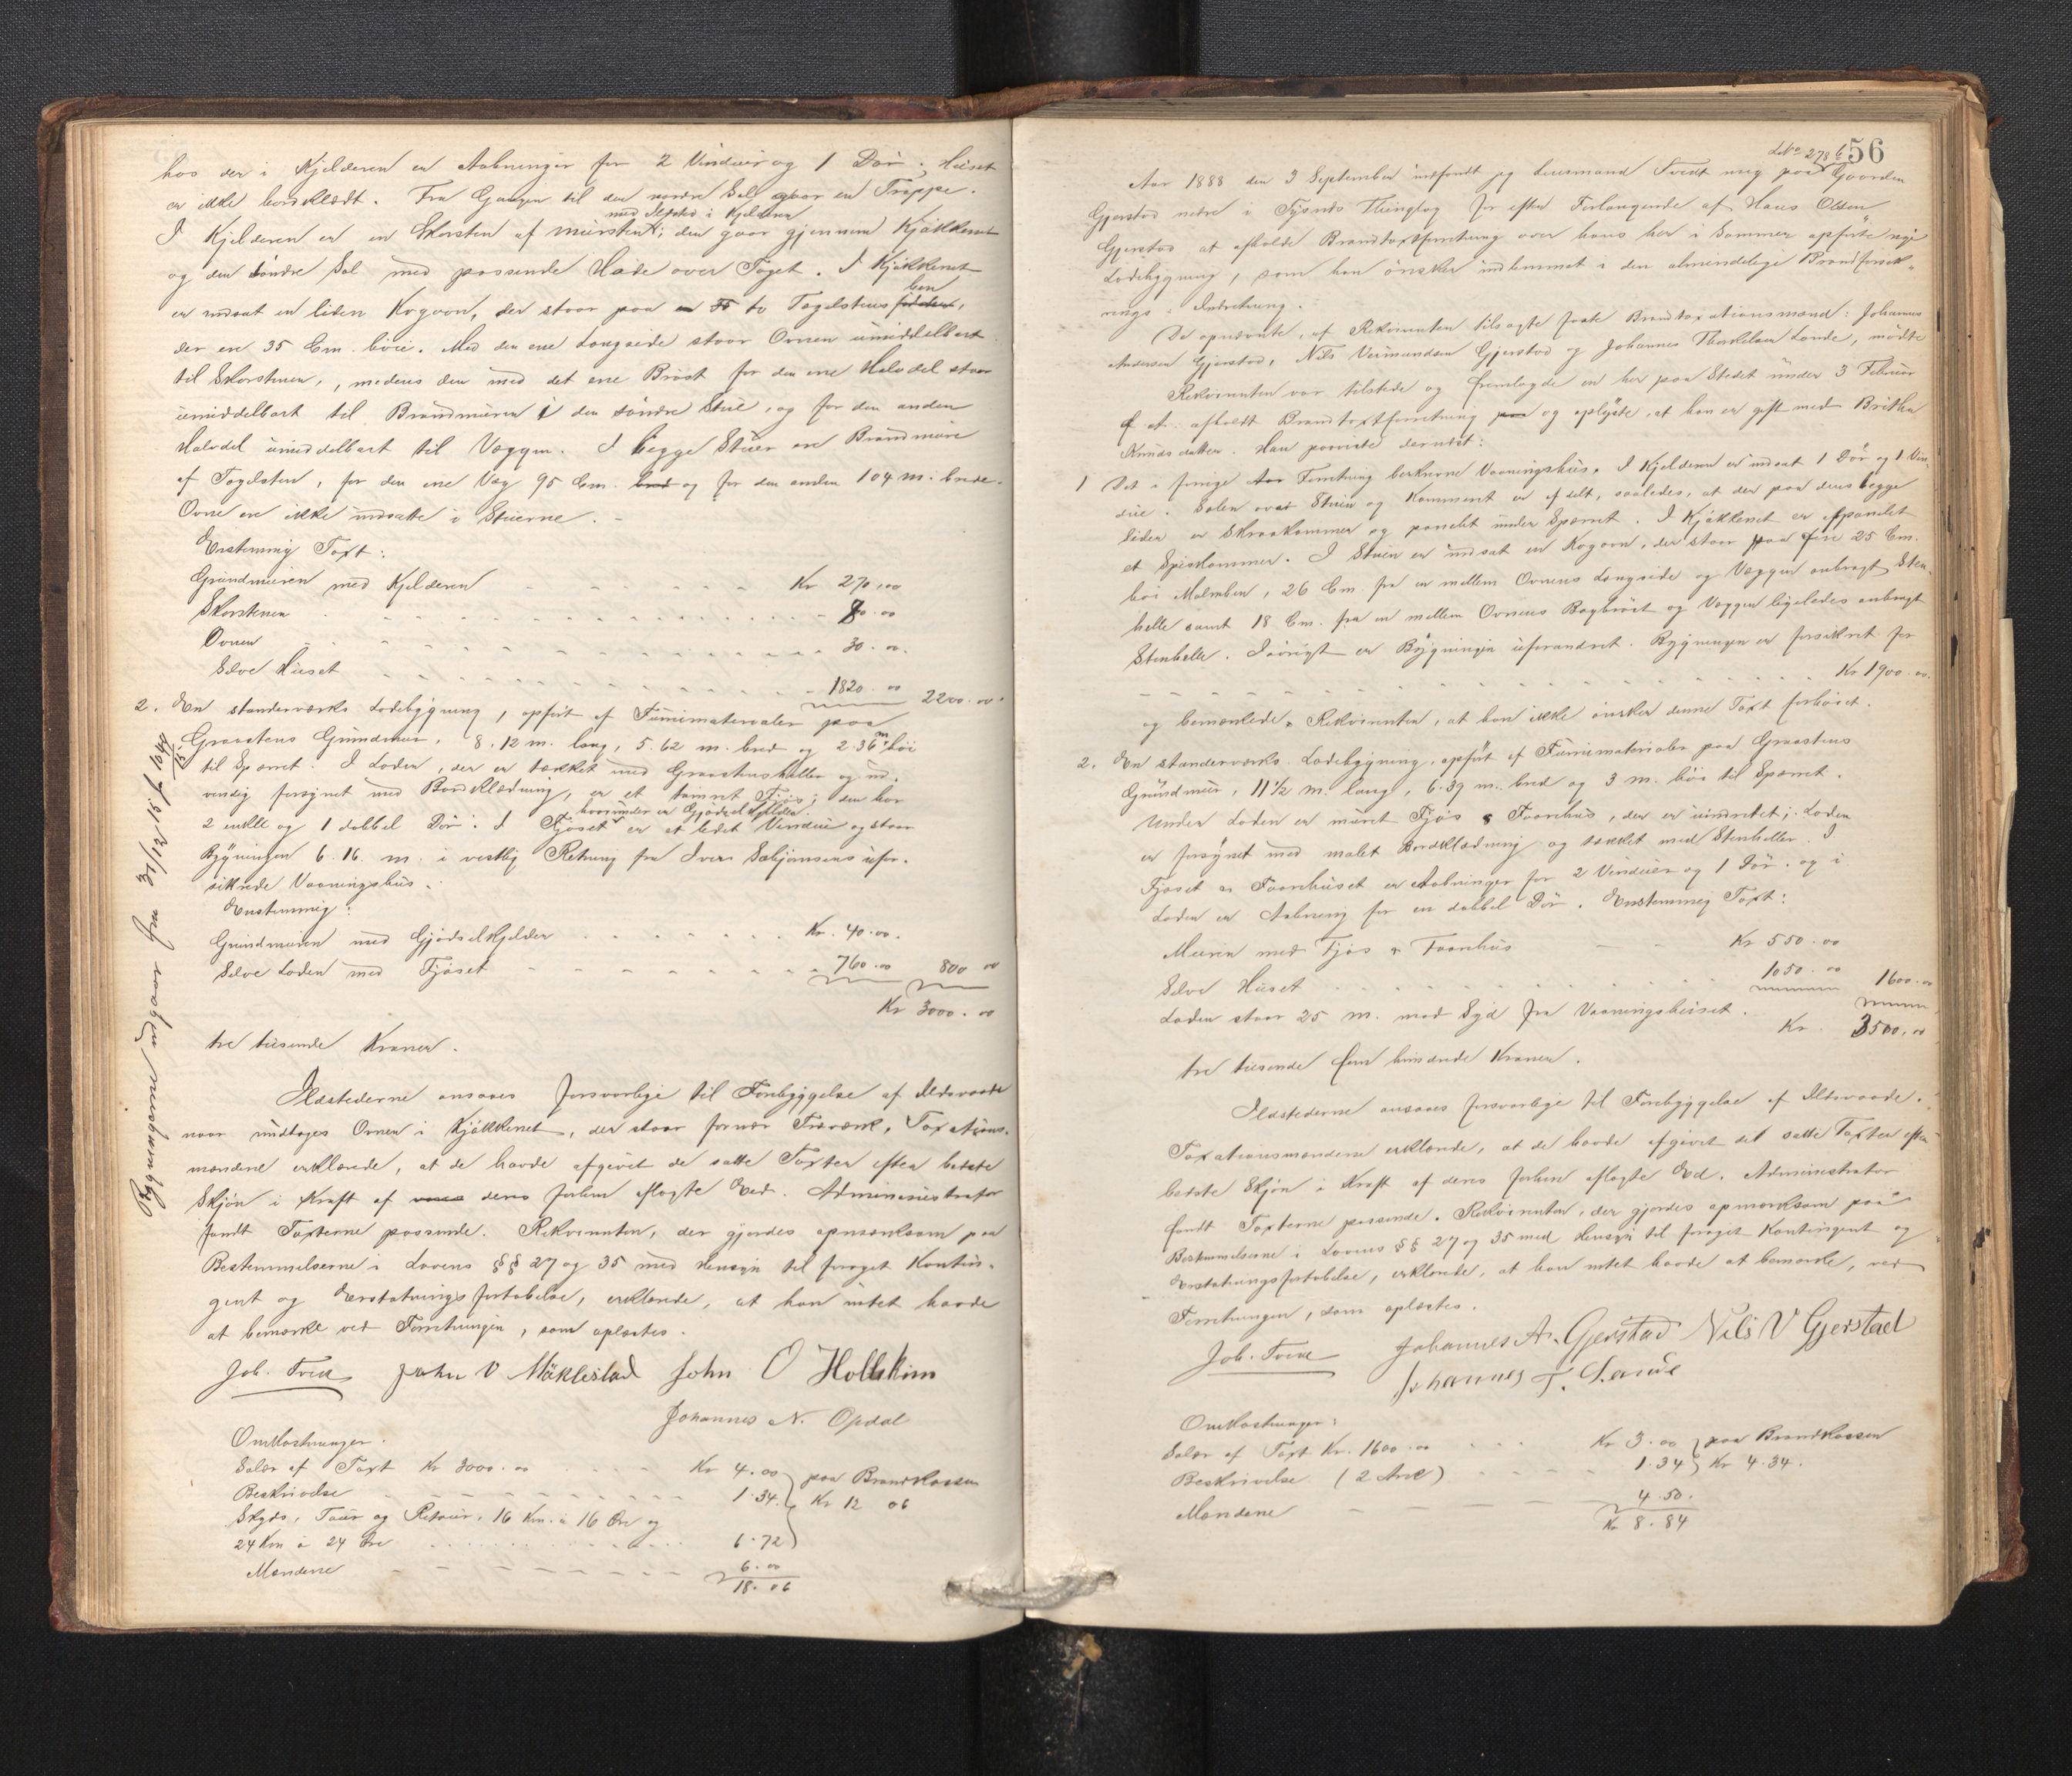 hos der i Kjelderen er Aabninger for 2 Vinduer og 1 Dør. Huset
er ikke bordklædt. Fra Gangen til den nordre Sal gaar en Trappe.
med Ildsted i Kjelderen
I Kjelderen er en Skorsten af mursten; den gaar gjennem Kjøkkenet
og den søndre Sal med passende Høide over Taget. I Kjøkkenet
er indsat en liden Kogovn, der staar paa to Taglstens ben,
der ere 35 Cm. høie. Med den ene Langside staar Ovnen umiddelbart
til Skorstenen, medens den med det ene Bryst for den ene Halvdel staar
umiddelbart til Brandmuren i den søndre Stue, og for den anden
Halvdel umiddelbart til Væggen. I begge Stuer ere Brandmure
af Taglsten, for den ene Væg 95 Cm. bred og for den anden 104 m. brede.
Ovne ere ikke indsatte i Stuerne.
Enstemmig Taxt:
Grundmuren med Kjelderen Kr 270,00
Skorstenen 80.00
Ovnen 30.00.
Selve Huset 1820.00 2200.00
2. En standerværks Ladebygning, opført af Furumaterialer paa
Graastens Grundmur, 8.12 m. lang, 5.62 m. bred og 2.36 m. høi
til Sperret. I Laden, der er tækket med Graastensheller og ud-
vendig forsynet med Bordklædning, er et tømret Fjøs; den har
hvorunder er Gjødselkjelder
2 enkle og 1 dobbel Dør. I Fjøset er et lidet Vindue og staar
Bygningen 6.16 m. i vestlig Retning fra Iver Sæbjørnsens ufor-
sikrede Vaaningshus.
Enstemmig:
Grundmuren med Gjødselkjelder Kr. 40.00.
Selve Laden med Fjøset 760.00 800 00
Kr 3000.00
tre tusende Kroner.
Ildstederne ansaaes forsvarlige til Forebyggelse af Ildsvaade
naar undtages Ovnen i Kjøkkenet, der staar for nær Træværk. Taxations-
mændene erklærede, at de havde afgivet de satte Taxter efter bedste
Skjøn i Kraft af deres forhen aflagte Eed. Administrator
fandt Taxterne passende. Rekvirenten, der gjordes opmærksom paa
Bestemmelserne i Lovens §§ 27 og 35 med Hensyn til forøget Kontin-
gent og Erstatnings fortabelse, erklærede, at han intet havde
at bemærke ved Forretningen, som oplæstes.
Joh. Tvedt John V Mæklestad John O Hollekim
Johannes N. Opdal
Omkostninger.
Salær af Taxt Kr 3000.00 Kr 4.00 paa Brandkassen
Beskrivelse 1.34 Kr 12 06
Skyds, Tour og Retour, 16 Km. à 16 Øre og
24 Km à 24 Øre 6.72
Mændene 6.00
18.06
Bygningerne udgaar fra 31/12 15
No 278 b 56
Aar 1888 den 3 September indfandt jeg Lensmand Tvedt mig paa Gaarden
Gjerstad nedre i Tysnes Thinglag for efter Forlangende af Hans Olsen
Gjerstad at afholde Brandtaxtforretning over hans her i Sommer opførte nye
Ladebygning, som han ønsker indlemmet i den almindelige Brandforsik-
rings Indretning.
De opnævnte, af Rekvirenten tilsagte faste Brandtaxationsmænd: Johannes
Andersen Gjerstad, Nils Veimundsen Gjerstad og Johannes Therkelsen Lande, mødte
Rekvirenten var tilstede og fremlagde en her paa Stedet under 3 Februar
f. a. afholdt Brandtaxtforretning og oplyste, at han er gift med Britha
Knudsdatter. Han paaviste dernæst:
1 Det i forrige Forretning beskrevne Vaaningshus. I Kjelderen er indsat 1 Dør og 1 Vin-
due. Salen over Stuen og Kammeret er afdelt, saaledes, at der paa dens begge
Sider er Skraakammer og panelet under Sperret. I Kjøkkenet er afpanelet
et Spiskammer. I Stuen er indsat en Kogovn, der staar paa fire 25 Cm.
høi Malmben, 26 Cm fra en mellem Ovnens Langside og Væggen anbragt Sten-
helle samt 18 Cm. fra en mellem Ovnens Bagbryst og Væggen ligeledes anbragt
Stenhelle. Iøvrigt er Bygningen uforandret. Bygningen er forsikret for
Kr 1900.00.
og bemærkede Rekvirenten, at han ikke ønsker denne Taxt forhøiet.
2. En standerværks Ladebygning, opført af Furumaterialer paa Graastens
Grundmur, 11½ m. lang, 6.39 m. bred og 3 m. høi til Sperret.
Under Laden er muret Fjøs & Faarehus, der er uindredet; Laden
er forsynet med malet Bordklædning og tækket med Stenheller. I
Fjøset & Faarehuset er Aabninger for 2 Vinduer og 1 Dør, og i
Laden er Aabning for en dobbel Dør. Enstemmig Taxt:
Muren med Fjøs & Faarehus Kr 550.00
Selve Huset 1050.00 1600.00
Laden staar 25 m. mod Syd fra Vaaningshuset. Kr. 3500.00
tre tusende fem hundrede Kroner.
Ildstederne ansaaes forsvarlige til Forebyggelse af Ildsvaade.
Taxationsmændene erklærede, at de havde afgivet det satte Taxter efter
bedste Skjøn i Kraft af deres forhen aflagte Ed. Administrator
fandt Taxterne passende. Rekvirenten, der gjordes opmærksom paa
Bestemmelserne i Lovens §§ 27 og 35 med Hensyn til forøget Kontingent og
Erstatningsfortabelse, erklærede, at han intet havde at bemærke, ved
Forretningen, som oplæstes.
Joh. Tvedt Johannes A. Gjerstad Nils V Gjerstad
Johannes T. Lande
Omkostninger:
Salær af Taxt Kr. 1600.00 Kr 3.00 paa Brandkassen
Beskrivelse (2 Ark) 1.34 Kr 4.34.
Mændene 4.50.
Kr 8.84